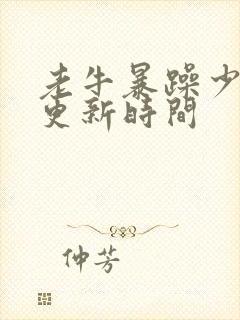 老牛暴躁少
更新時間
仲芳